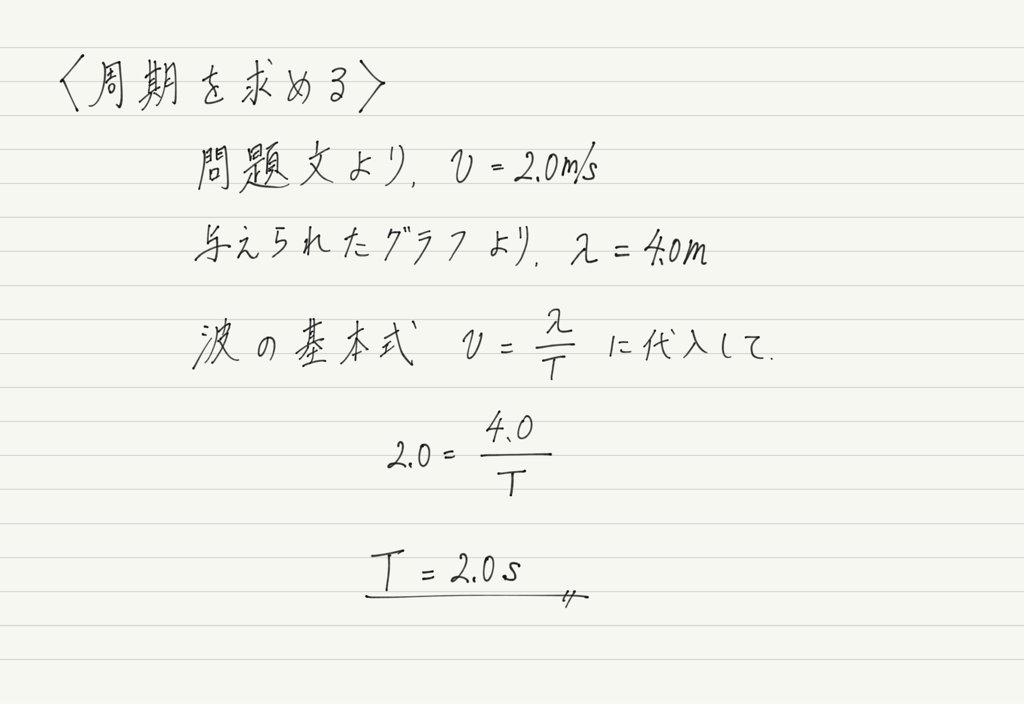 〈周期を求める〉
問題文より, v = 2.0m/s
与えられたグラフより, λ = 4.0m
波の基本式 v = λ/T に代入して,
2.0 = 4.0/T
T = 2.0s